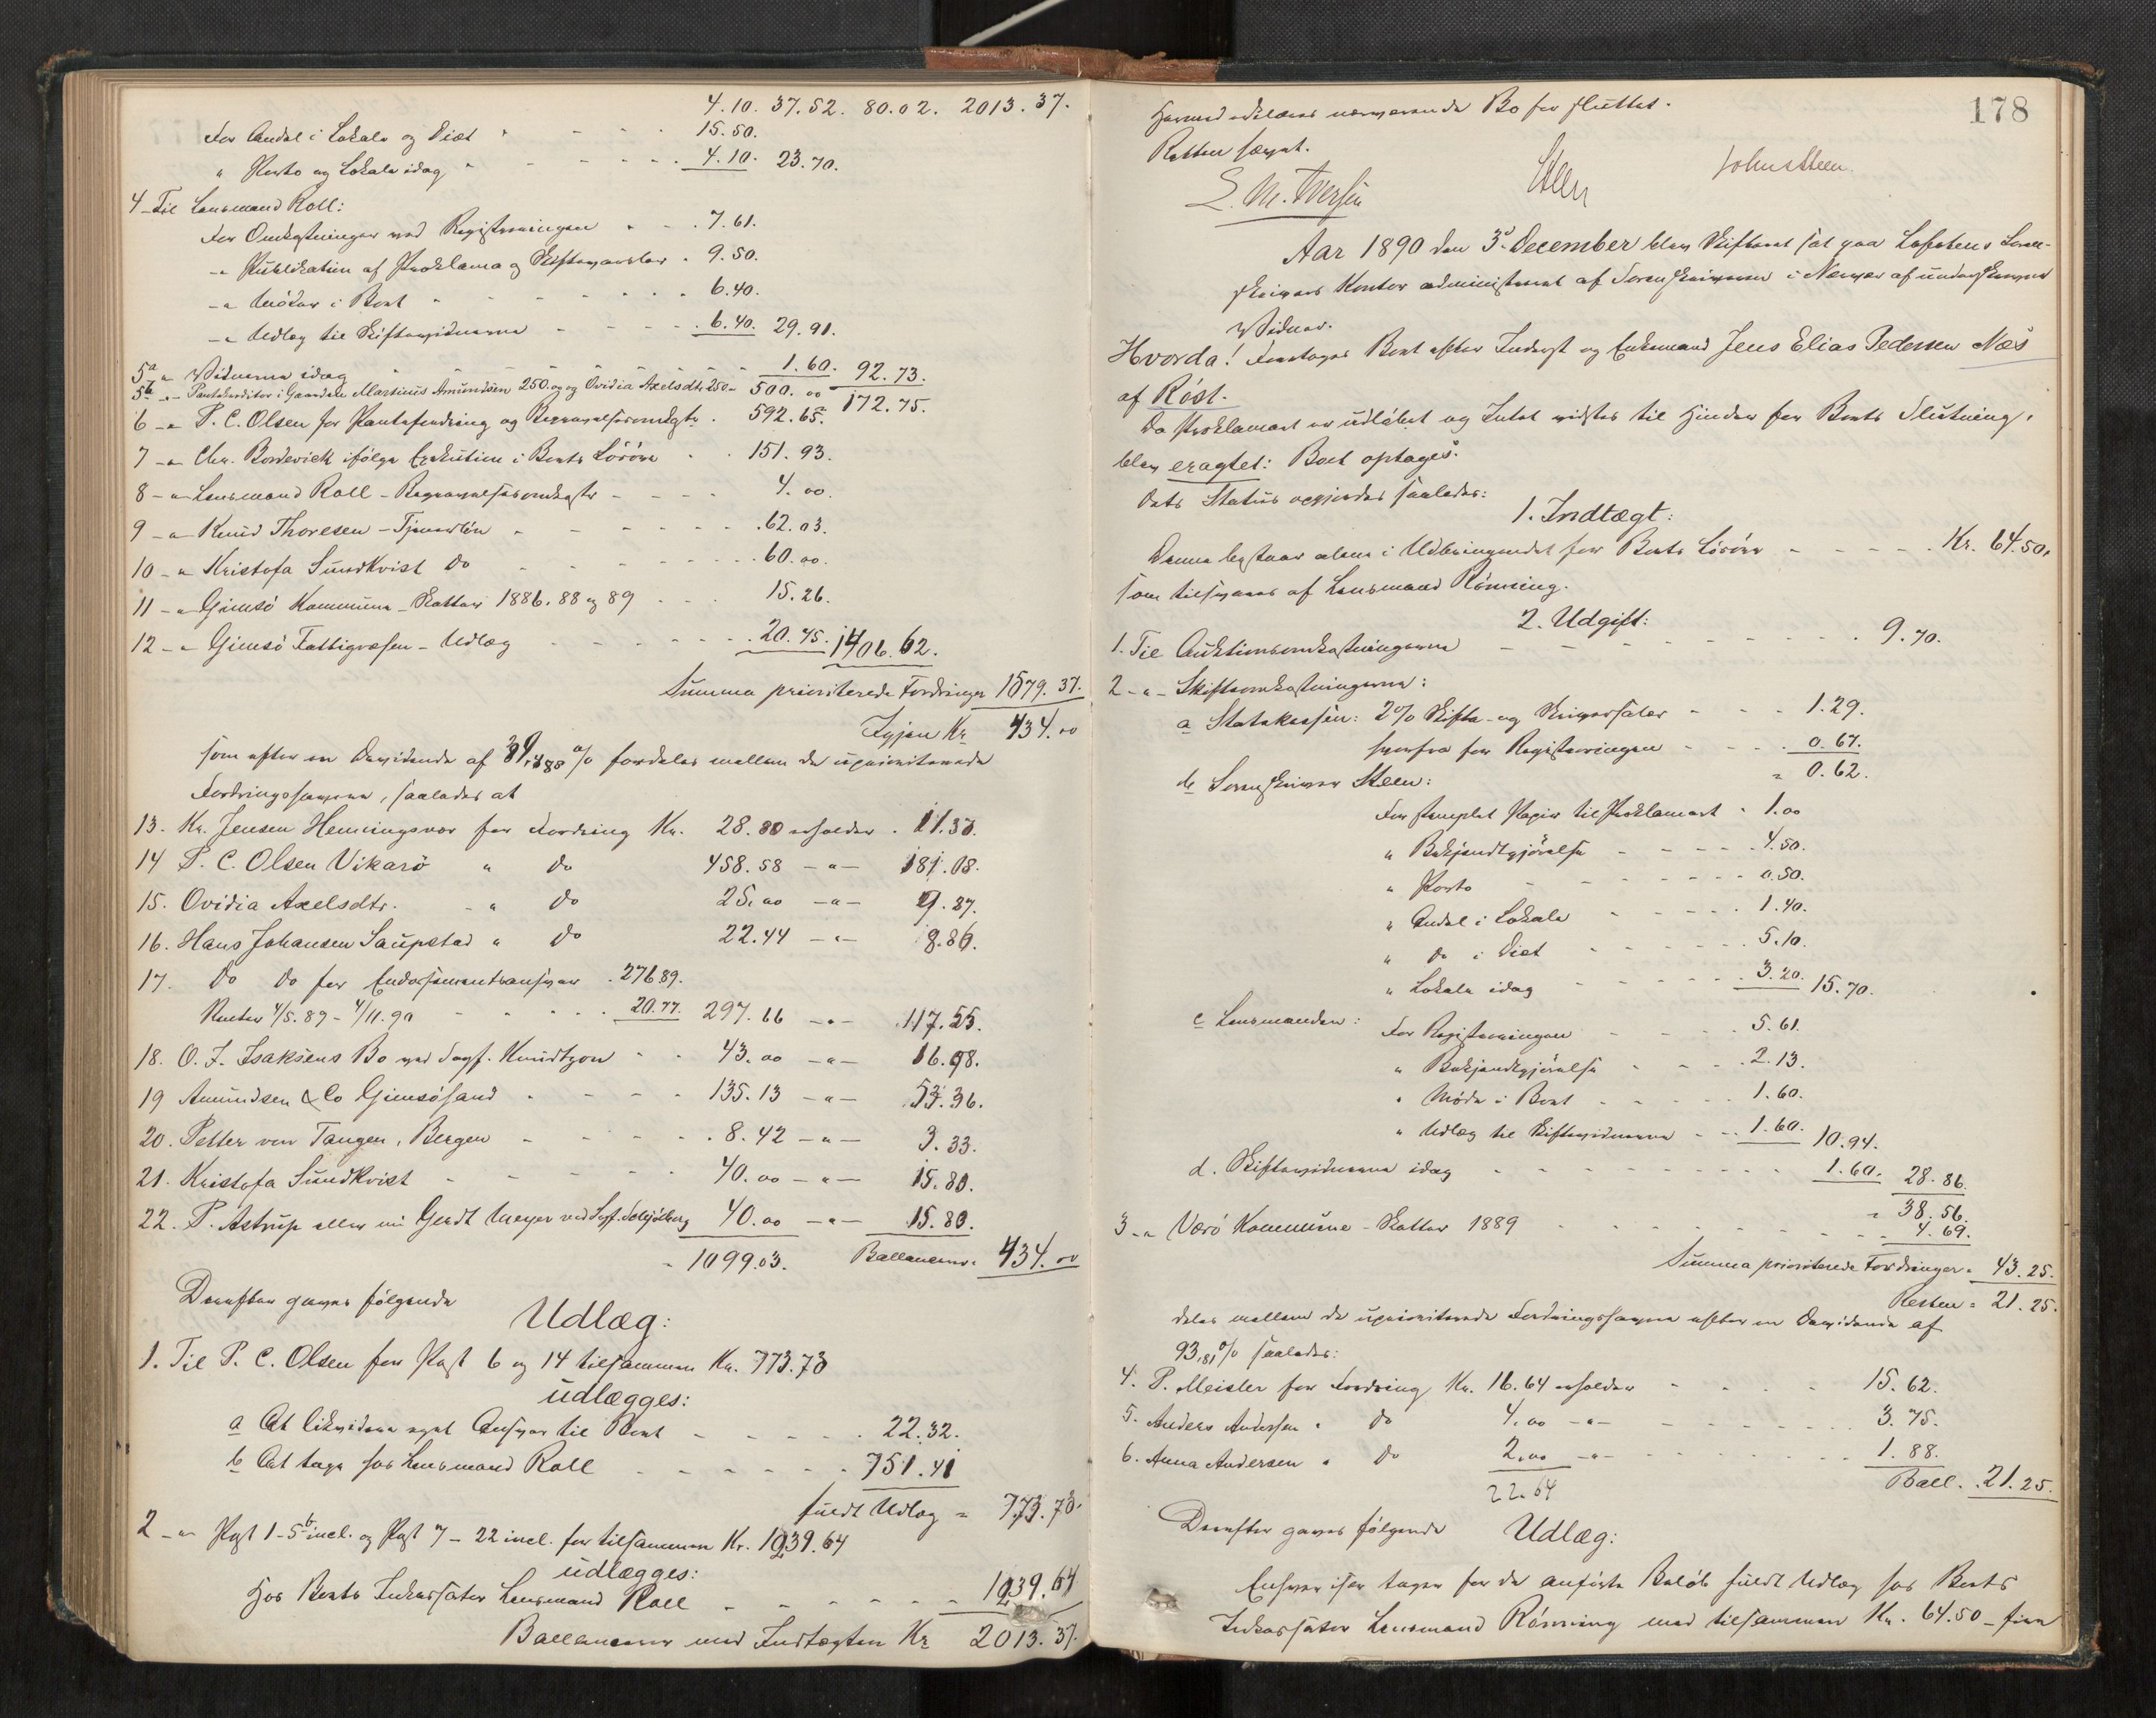 4.10. 37.52. 80.02. 2013.37.
For Andel i Lokale og Diæt - - - 15.50.
" Porto og Lokale idag - - - 4.10. 23.70.
4 - Til Lensmand Roll:
For Omkostninger ved Registreringen - - 7.61.
-"- Publikation af Proklama og Skiftesamlar - 9.50.
-"- Møder i Boet - - - 6.40.
-"- Udlæg til Skiftevidnerne - - - 6.40. 29.91.
5a " Vidnerne idag - - - 1.60. 92.73.
5b -"- Pantekreditor i Gaarden Martinus Amundsen 250.00 og Ovidia Axelsdtr 250 - 500.00 172.75.
6 -"- P. C. Olsen for Pantefordring og Begravelsesomkgtr. 592.65.
7 -"- Chr. Bordevick ifølge Exekution i Boets Løsøre - - 151.93.
8 -"- Lensmand Roll - Begravelsesomkostr - - - 4.00
9 -"- Knud Thoresen - Tjenerløn - - - 62.03.
10 -"- Kristofa Sundkvist Do - - - 60.00.
11 -"- Gimsø Kommune - Skatter 1886. 88 og 89 - - 15.26.
12 -"- Gimsø Fattigvæsen - Udlæg - - - 20.75. 1406.62.
Summa prioriterede Fordringer 1579.37.
Igjen Kr 434.00
som efter en Dividende af 39,488 % fordeles mellem de uprioriterede
Fordringshavere, saaledes at
13. Kr. Jensen Henningsvær for Fordring Kr. 28.80 erholder . 11.37.
14 P. C. Olsen Vikarø " Do 458.58 -"- 181.08.
15. Ovidia Axelsdtr. - " Do 25.00 -"- 9.87.
16. Hans Johansen Saupstad " Do 22.44 -"- 8.86.
17. Do Do for Endossementsansvar . 276.89.
Renter 4/5.89 - 4/11.90 - - - 20.77. 297.66 -"- 117.55.
18. O. J. Isaksens Bo ved Sagf. Knudtzon - - 43.00 -"- 16.98.
19 Amundsen & Co Gimsøsand - - - 135.13 -"- 53.36.
20. Petter von Tangen, Bergen - - - 8.42 -"- 3.33.
21. Kristofa Sundkvist - - - 40.00 -"- 15.80.
22. P. Astrup eller nu Gerdt Meyer ved Sagf. Solhjølberg 40.00 -"- 15.80.
- 1099.03. Ballancerer 434.00
Derefter gaves følgende
Udlæg:
1. Til P. C. Olsen for Post 6 og 14 tilsammen Kr. 773.73
udlægges:
a At likvidere eget Ansvar til Boet - - - 22.32.
b At tage hos Lensmand Roll - - - 751.41
fuldt Udlæg = 773.73.
2 -"- Post 1 - 5b incl. og Post 7 - 22 incl. for tilsammen Kr. 1239.64
udlægges:
Hos Boets Inkassator Lensmand Roll - - - 1239.64
Ballancerer med Indtægten Kr 2013.37.
178
Hermed erklæres nærværende Bo for sluttet.
Retten hævet.
Steen
John Steen.
S. M. Iversen
Aar 1890 den 3' December blev Skifteret sat paa Lofotens Soren-
skrivers Kontor administreret af Sorenskriveren i Nærvær af underskrevne
Vidner.
Hvorda! Foretoges Boet efter Inderst og Enkemand Jens Elias Pedersen Næs
af Røst.
Da Proklamaet er udløbet og Intet vidstes til Hinder for Boets Slutning,
blev eragtet: Boet optages.
Dets Status opgjordes saaledes:
1. Indtægt:
Denne bestaar alene i Udbringendet for Boets Løsøre - - - Kr. 64.50,
som tilsvares af Lensmand Rønning.
2. Udgift:
1. Til Auktionsomkostningerne - - - 9.70.
2 -"- Skifteomkostningerne:
a Statskassen: 2% Skifte- og Skriversaler - - - 1.29.
herfra for Registreringen - - - 0.67.
= 0.62.
b Sorenskriver Steen:
For stemplet Papir til Proklamaet - 1.00
" Bekjendtgjørelse - - - 4.50.
" Porto - - - 0.50.
" Andel i Lokale - - - 1.40.
" Do i Diæt - - - 5.10.
" Lokale idag - - - 3.20. 15.70.
c Lensmanden: For Registreringen - - - 5.61.
" Bekjendtgjørelse - - - 2.13.
" Møde i Boet - - - 1.60.
" Udlæg til Skiftevidnerne - - 1.60. 10.94.
d. Skiftevidnerne idag - - - 1.60. 28.86.
= 38.56.
3 -"- Værø Kommune - Skatter 1889 - - - 4.69.
Summa prioriterede Fordringer = 43.25.
Resten = 21.25.
deles mellem de uprioriterede Fordringshavere efter en Dividende af
93,81 % saaledes:
4. P. Meisler for Fordring Kr. 16.64 erholder - - - 15.62.
5. Anders Andersen " Do 4.00 -"- - - - 3.75.
6. Anna Andersen " Do 2.00 -"- - - - 1.88.
22.64 Ball. 21.25.
Derefter gaves følgende Udlæg:
Enhver især tager for de anførte Beløb fuldt Udlæg hos Boets
Inkassator Lensmand Rønning med tilsammen Kr. 64.50 - fire